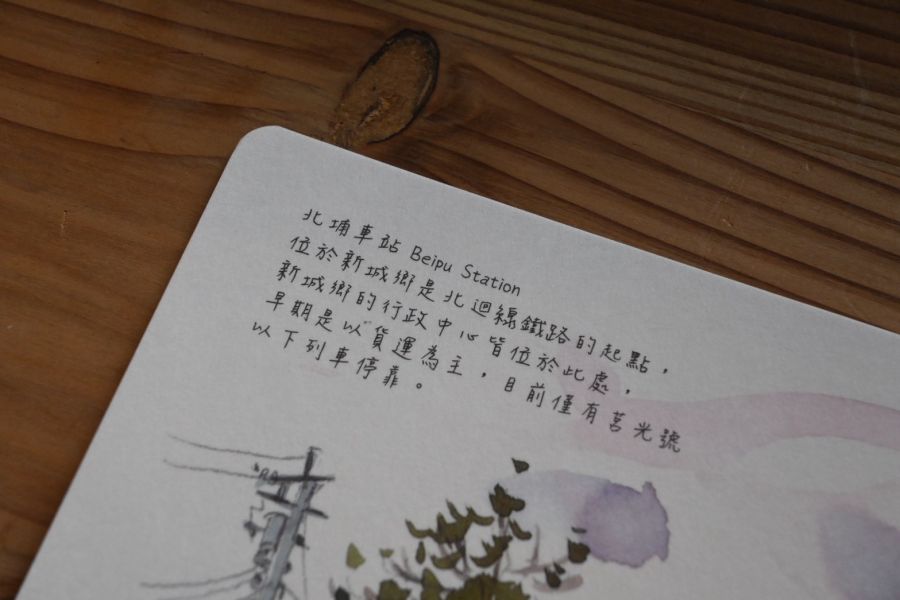 北埔車站 Beipu Station
位於新城鄉是北迴線鐵路的起點，
新城鄉的行政中心皆位於此處，
早期是以貨運為主，目前僅有莒光號
以下列車停靠。